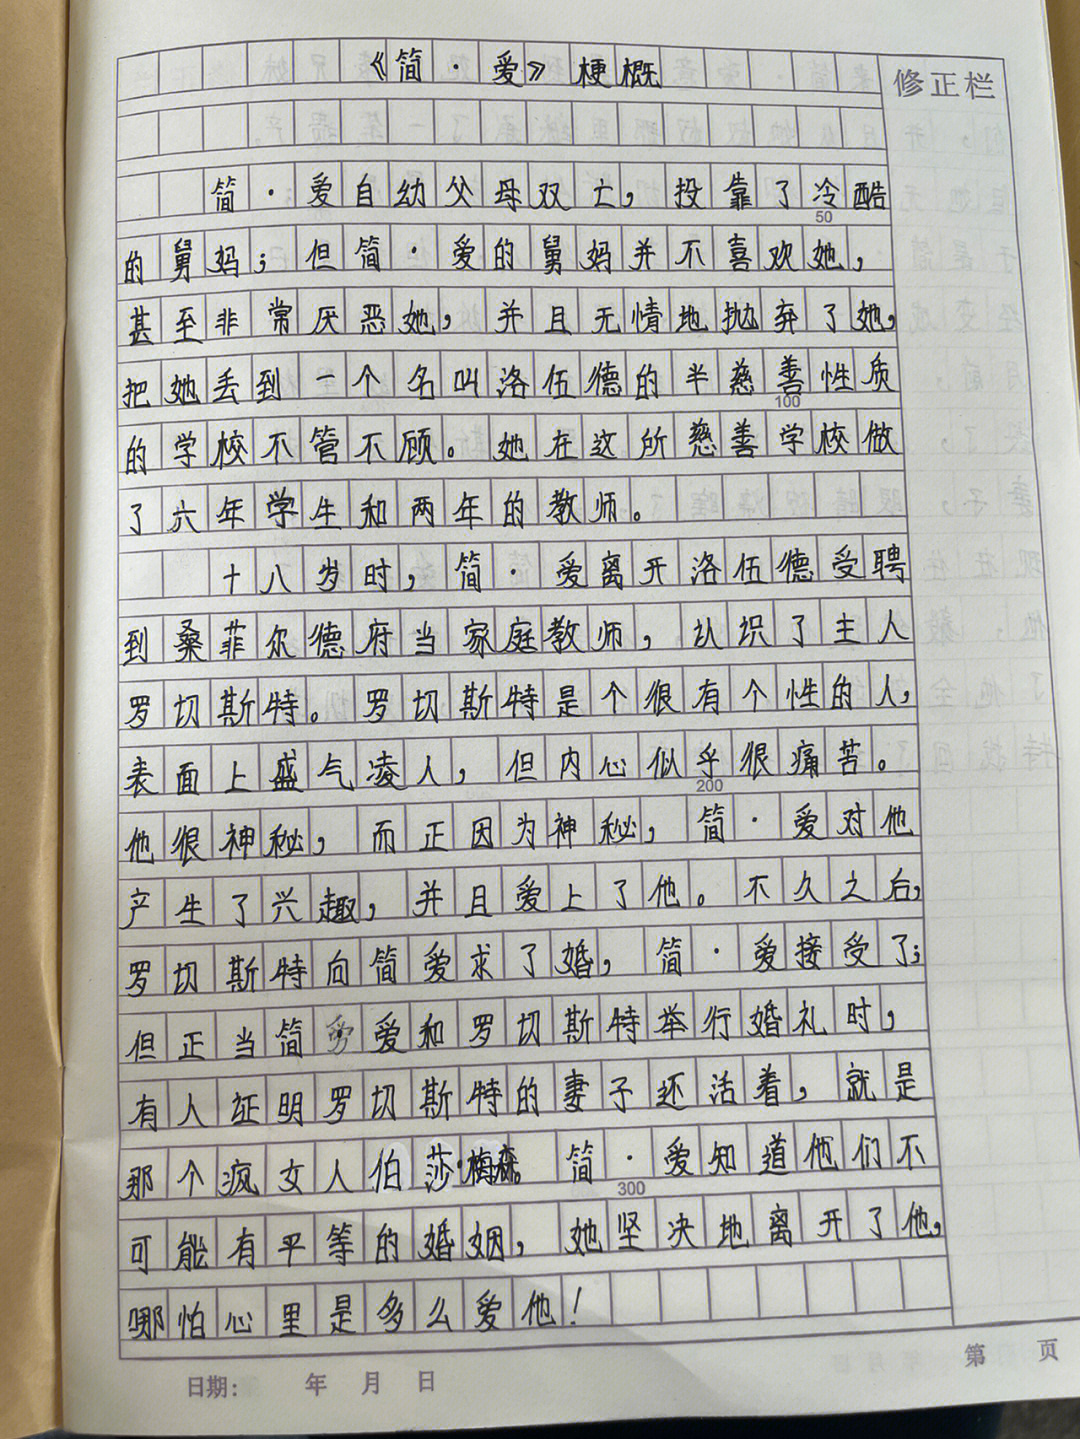 《简·爱》梗概
修正栏
简·爱自幼父母双亡，投靠了冷酷
50
的舅妈；但简·爱的舅妈并不喜欢她，
甚至非常厌恶她，并且无情地抛弃了她，
把她丢到一个名叫洛伍德的半慈善性质
100
的学校不管不顾。她在这所慈善学校做
了六年学生和两年的教师。
十八岁时，简·爱离开洛伍德受聘
到桑菲尔德府当家庭教师，认识了主人
罗切斯特。罗切斯特是个很有个性的人，
表面上盛气凌人，但内心似乎很痛苦。
200
他很神秘，而正因为神秘，简·爱对他
产生了兴趣，并且爱上了他。不久之后，
罗切斯特向简爱求了婚，简·爱接受了；
但正当简·爱和罗切斯特举行婚礼时，
有人证明罗切斯特的妻子还活着，就是
那个疯女人伯莎·梅森。简·爱知道他们不
300
可能有平等的婚姻，她坚决地离开了他，
哪怕心里是多么爱他！
日期： 年 月 日
第 页